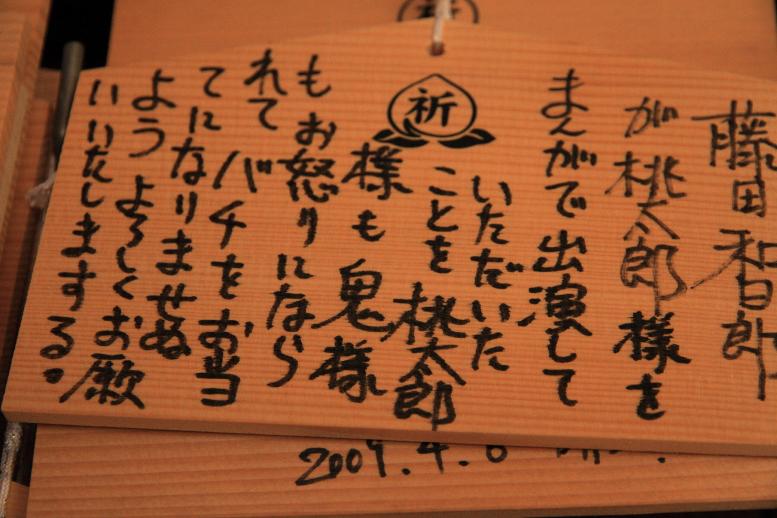 藤田和日郎
が桃太郎様を
まんがで出演して
いただいた
ことを桃太郎
祈
様も鬼様
もお怒りになら
れて
バチをお当
てになりませぬ
よう よろしくお願
いいたしまする。
2009.4.6